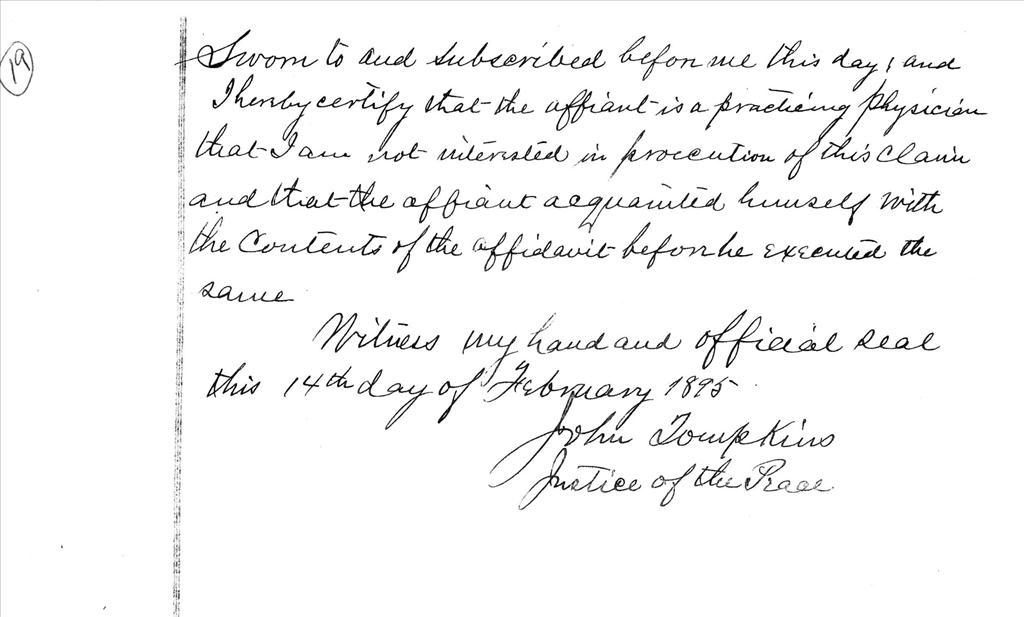 19
Sworn to and subscribed before me this day, and
I hereby certify that the affiant is a practicing physician
that I am not interested in procecution of this claim
and that the affiant acquainted himself with
the Contents of the affidavit before he executed the
same
Witness my hand and official seal
this 14th day of February 1895
John Tompkins
Justice of the Peace